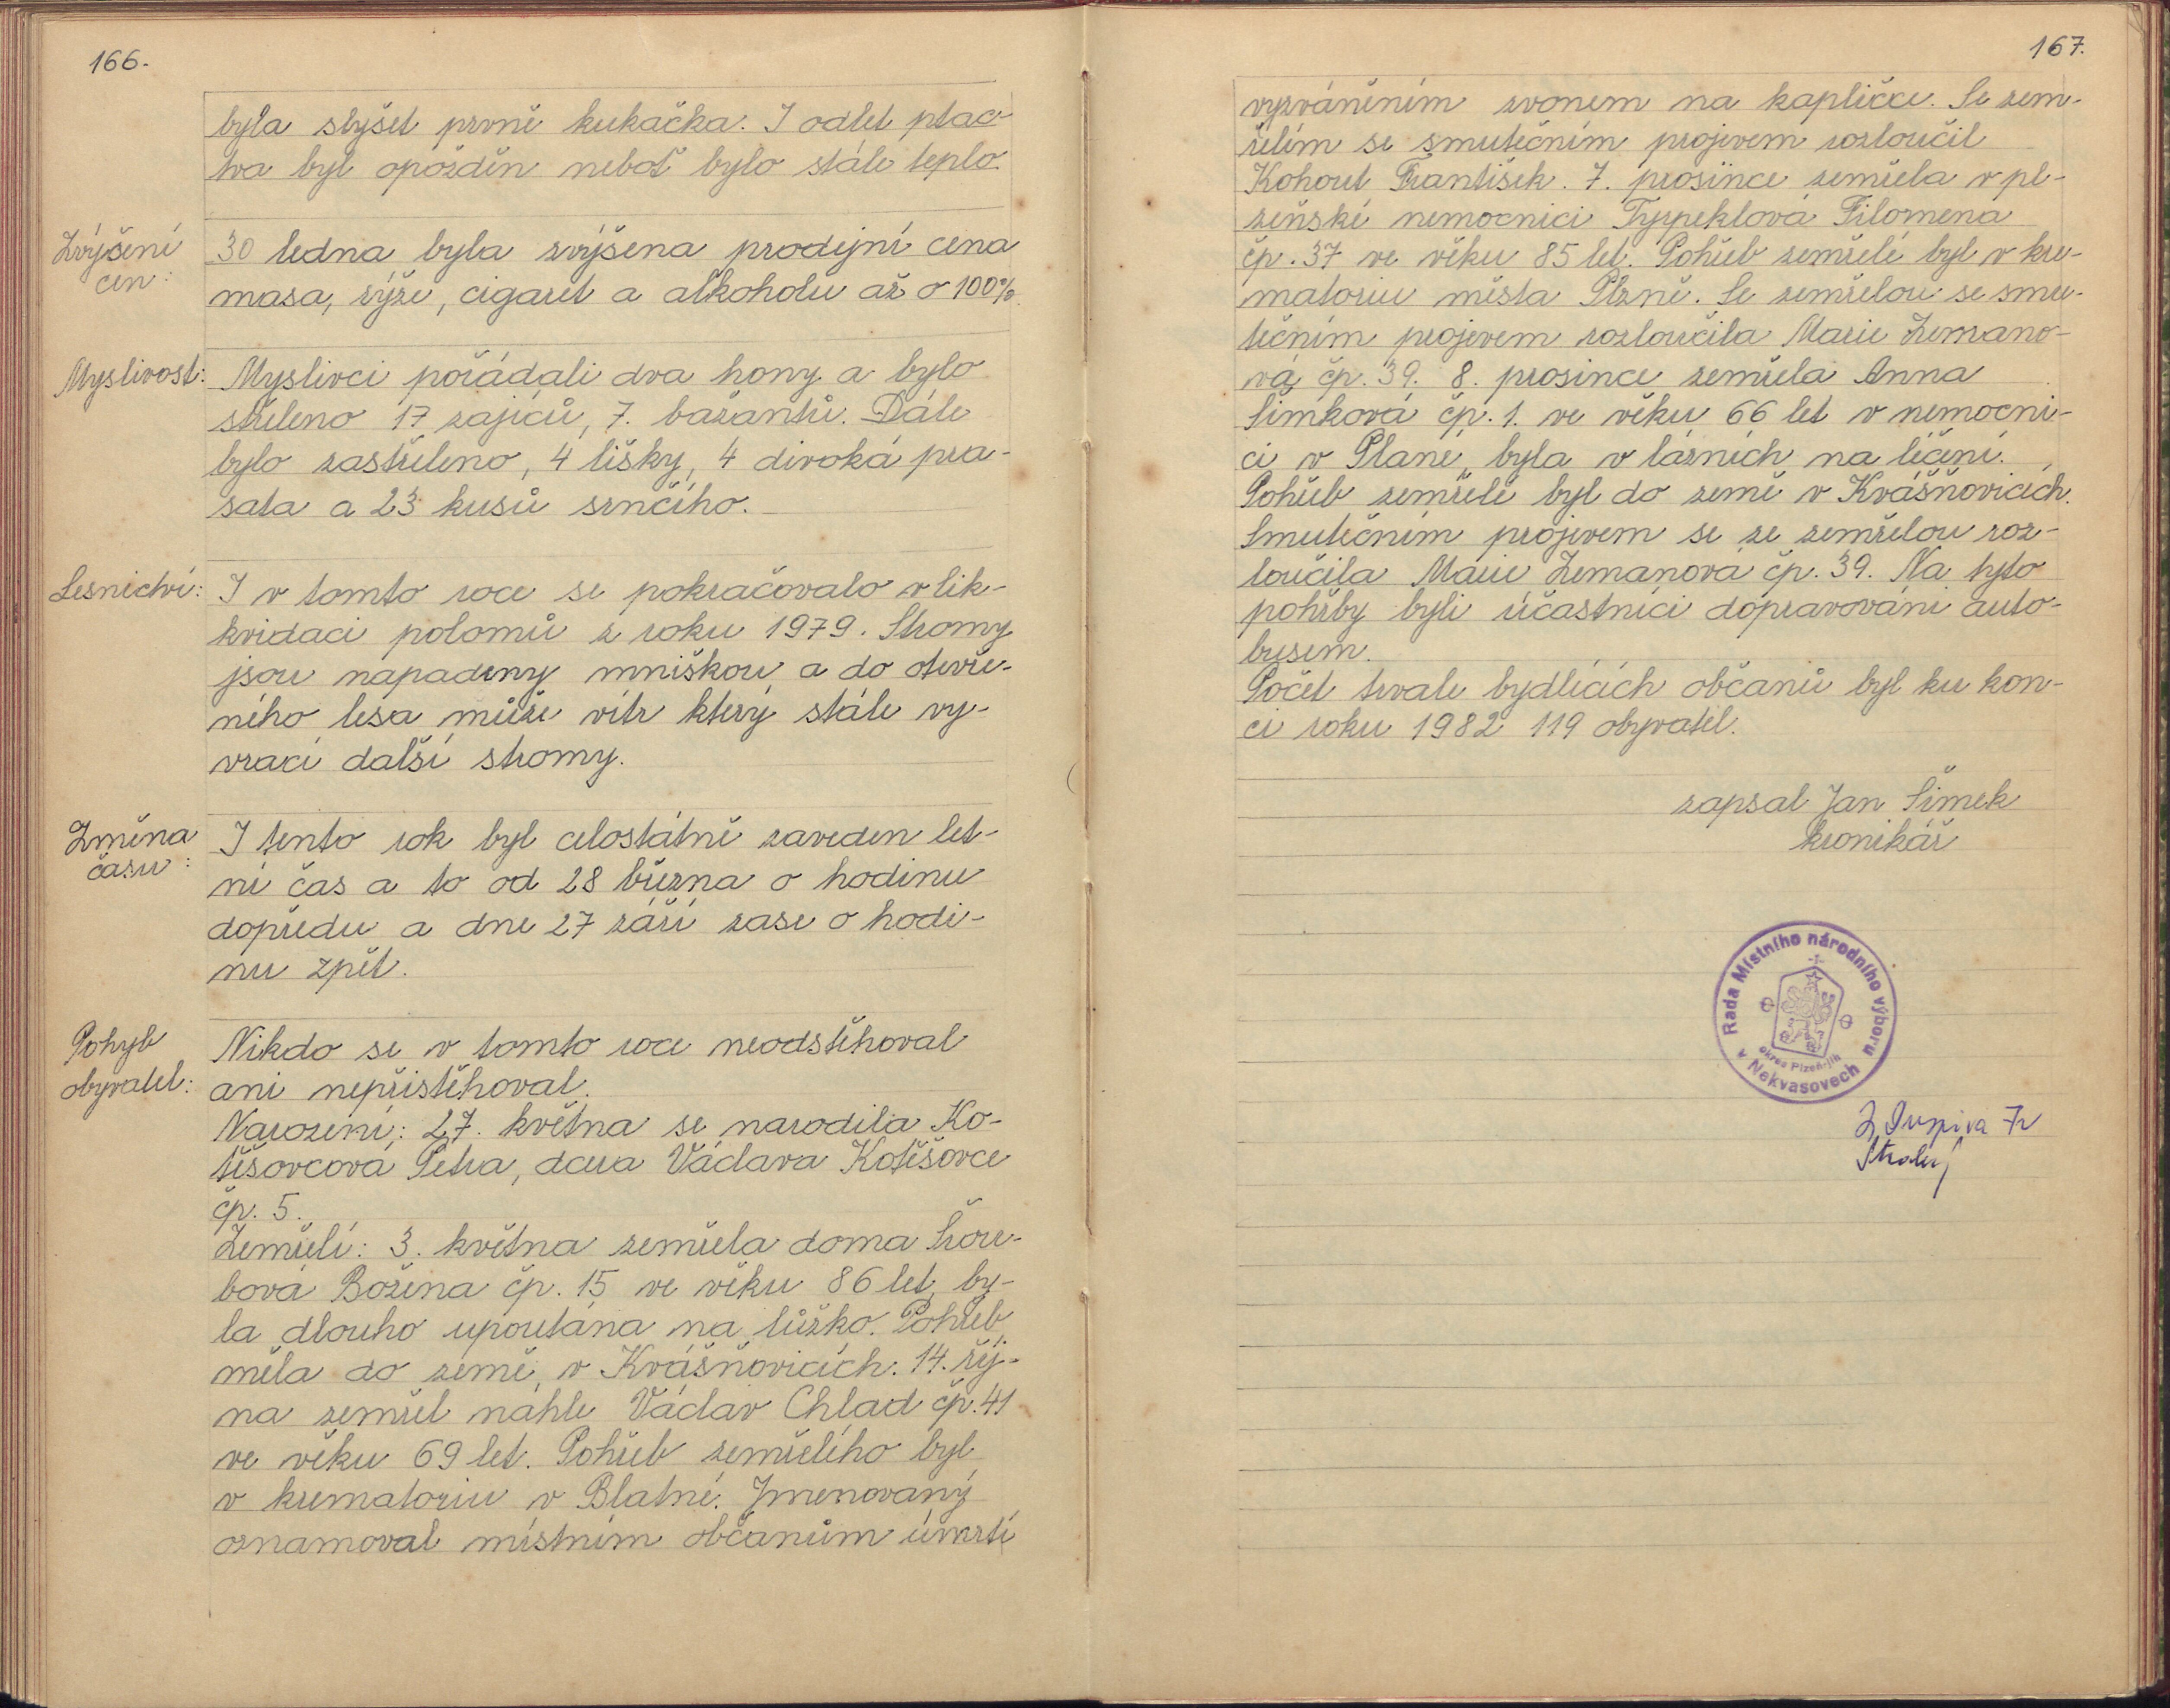 166.
byla slyšet prvně kukačka. I odlet ptac-
tva byl opožděn neboť bylo stále teplo.
Zvýšení
cen:
30 ledna byla zvýšena prodejní cena
masa, rýže, cigaret a alkoholu až o 100%.
Myslivost:
Myslivci pořádali dva hony a bylo
střeleno 17 zajíců, 7. bažantů. Dále
bylo zastřeleno, 4 lišky, 4 divoká pra-
sata a 23 kusů srnčího.
Lesnictví:
I v tomto roce se pokračovalo v lik-
kvidaci polomů z roku 1979. Stromy
jsou napadeny mniškou a do otevře-
ného lesa může vítr který stále vy-
vrací další stromy.
Změna
času:
I tento rok byl celostátně zaveden let-
ní čas a to od 28 března o hodinu
dopředu a dne 27 září zase o hodi-
nu zpět.
Pohyb
obyvatel:
Nikdo se v tomto roce neodstěhoval
ani nepřistěhoval.
Narození: 27. května se narodila Ko-
těšovcová Petra, dcera Václava Kotěšovce
čp. 5.
Zemřelí: 3. května zemřela doma Šrou-
bová Božena čp. 15 ve věku 86 let, by-
la dlouho upoutána na lůžko. Pohřeb
měla do země, v Kvášňovicích. 14. říj-
na zemřel náhle Václav Chlad čp. 41
ve věku 69 let. Pohřeb zemřelého byl
v krematoriu v Blatné. Jmenovaný
oznamoval místním občanům úmrtí
167.
vyzváněním zvonem na kapličce. Se zem-
řelým se smutečním projevem rozloučil
Kohout František. 7. prosince zemřela v pl-
zeňské nemocnici Tyrpeklová Filomena
čp. 37 ve věku 85 let. Pohřeb zemřelé byl v kre-
matoriu města Plzně. Se zemřelou se smu-
tečním projevem rozloučila Marie Zemano-
vá, čp. 39. 8. prosince zemřela Anna
Šimková čp. 1. ve věku 66 let v nemocni-
ci v Plané, byla v lázních na léčení.
Pohřeb zemřelé byl do země v Kvášňovicích.
Smutečním projevem se ze zemřelou roz-
loučila Marie Zemanová čp. 39. Na tyto
pohřby byli účastníci dopravováni auto-
busem.
Počet trvale bydlících občanů byl ku kon-
ci roku 1982 119 obyvatel.
zapsal Jan Šimek
kronikář
Rada Místního národního výboru
v Nekvasovech
okres Plzeň-jih